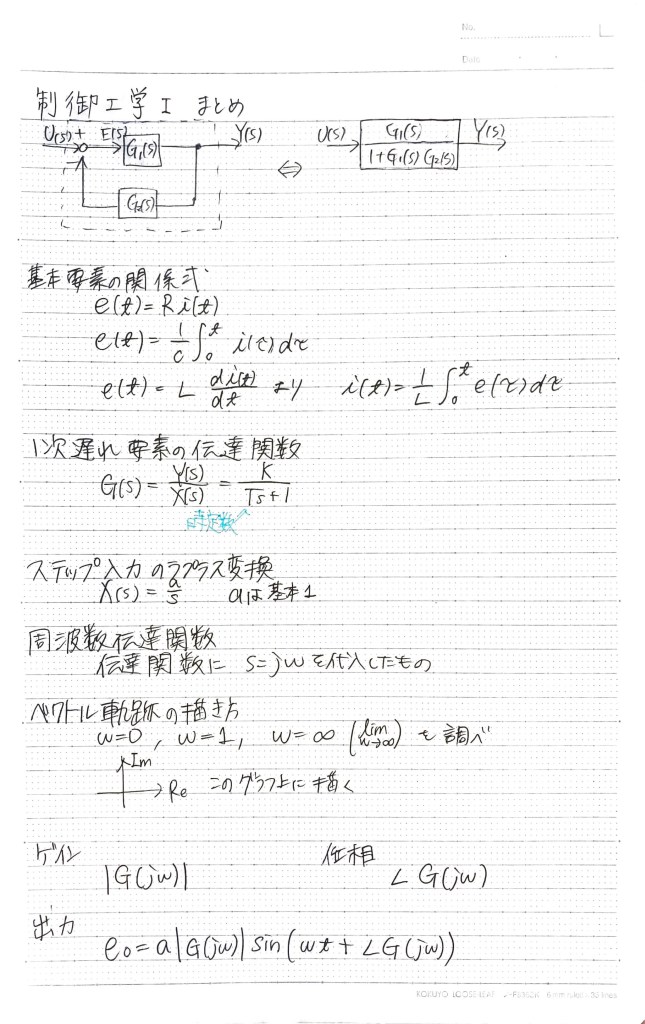 No.
Date
制御工学 I まとめ
U(s) + E(s) G₁(s) Y(s) ⇔ U(s) G₁(s) / 1+G₁(s)G₂(s) Y(s)
G₂(s)
基本要素の関係式
e(t) = R i(t)
e(t) = 1/C ∫₀ᵗ i(τ)dτ
e(t) = L di(t)/dt より i(t) = 1/L ∫₀ᵗ e(τ)dτ
1次遅れ要素の伝達関数
G(s) = Y(s)/X(s) = K/Ts+1
時定数
ステップ入力のラプラス変換
X(s) = a/s aは基本1
周波数伝達関数
伝達関数に s=jω を代入したもの
ベクトル軌跡の描き方
ω=0, ω=1, ω=∞ (lim ω→∞) を調べ
Im
Re このグラフ上に描く
ゲイン 位相
|G(jω)| ∠G(jω)
出力
e₀=a|G(jω)|sin(ωt+∠G(jω))